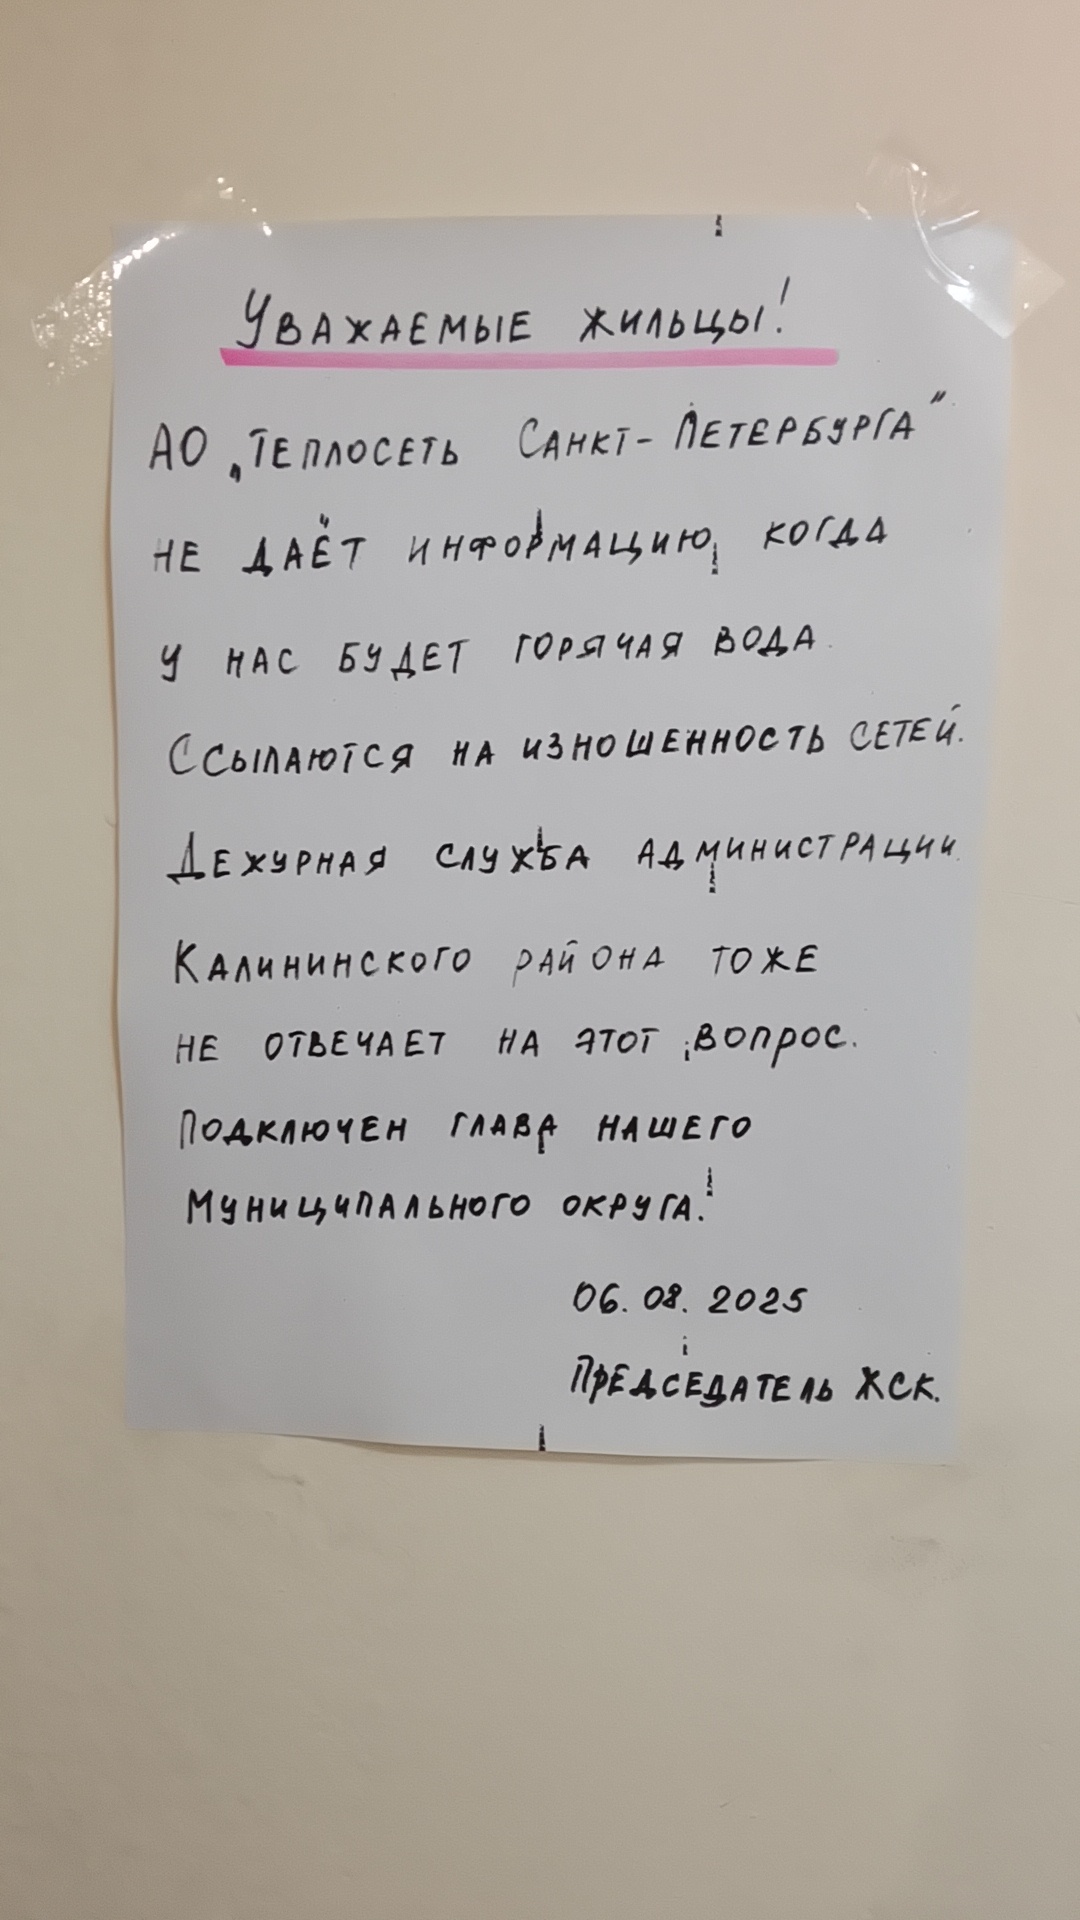 Уважаемые жильцы!
АО „Теплосеть Санкт-Петербурга"
не даёт информацию, когда
у нас будет горячая вода.
Ссылаются на изношенность сетей.
Дежурная служба администрации
Калининского района тоже
не отвечает на этот вопрос.
Подключен глава нашего
Муниципального округа.
06.08.2025
Председатель ЖСК.